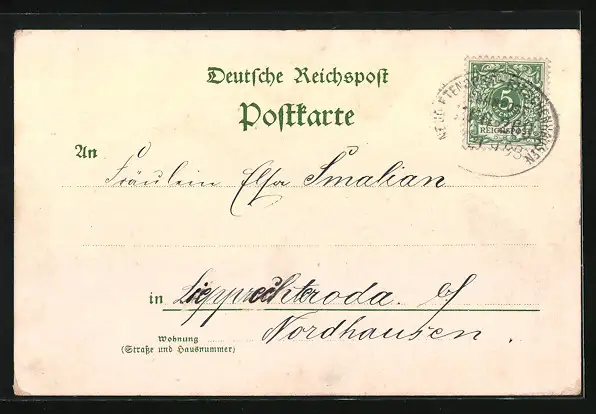 Deutsche Reichspost
Postkarte
An
Fräulein Elsa Smalian
in Lipprechteroda. b/
Nordhausen.
Wohnung
(Straße und Hausnummer)
5
REICHSPOST